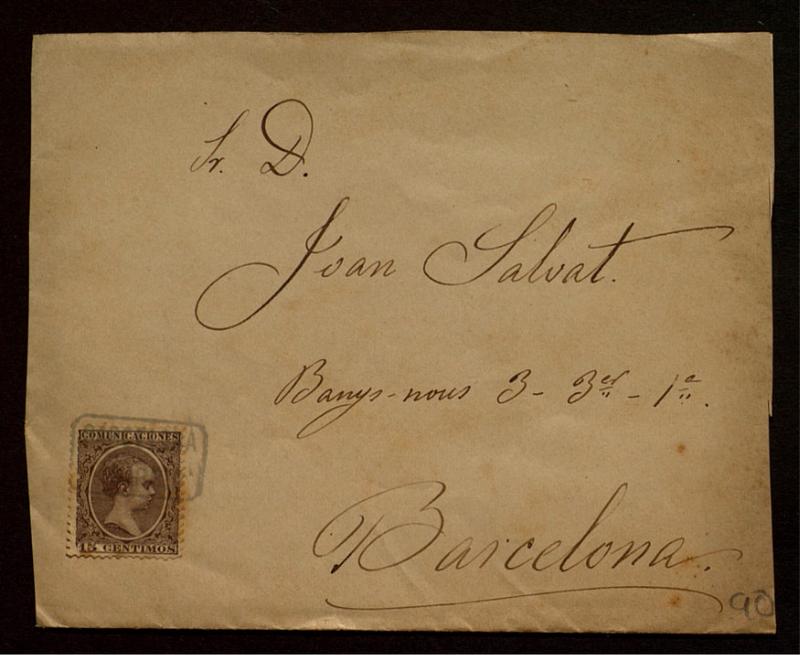 Sr. D.
Joan Salvat.
Banys-nous 3 - 3er - 1a.
Barcelona.
COMUNICACIONES
15 CENTIMOS
90